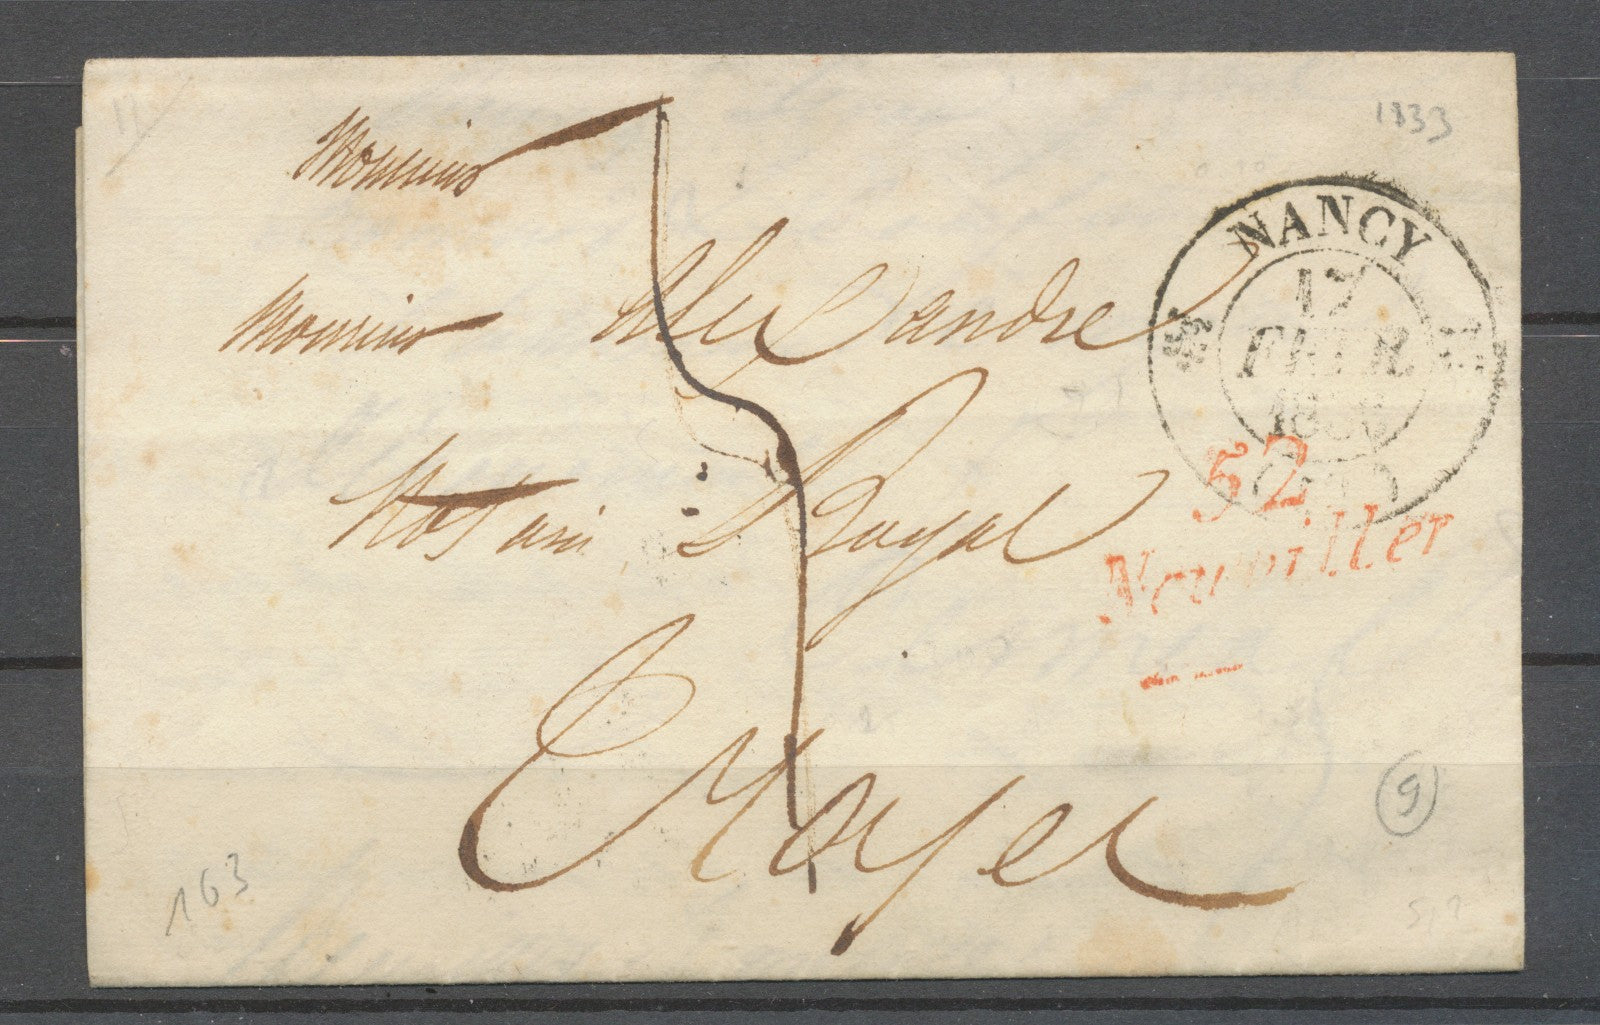 1833
Monsieur
NANCY
17
FEVR.
Monsieur Alexandre
Notaire Royal
52
Neuviller
Troyes
9
163